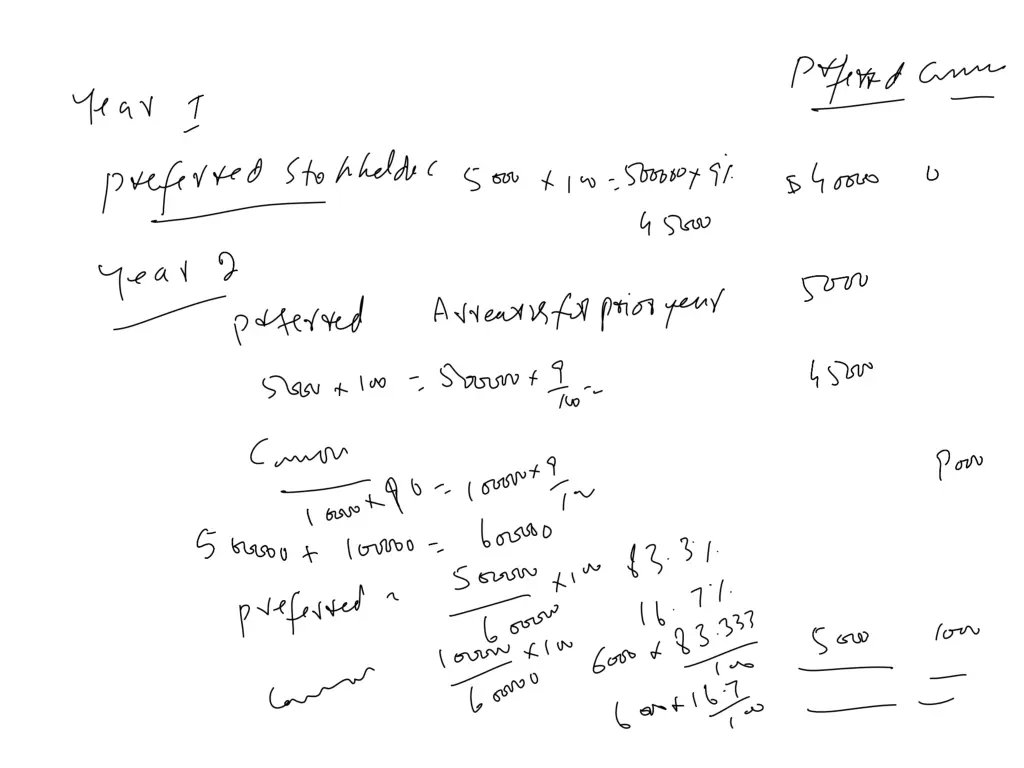 Preferred Common
Year I
preferred Stockholder 5000 × 100 = 500000 × 9% $40000 0
45000
Year 2
preferred Arrears for prior year 5000
5000 × 100 = 500000 × 9/100 = 45000
Common 9000
10000 × = 100000 × 9/100
500000 + 100000 = 600000
preferred = 500000/600000 × 100 83.3%
16.7%
Common 100000/600000 × 100 6000 × 83.333/100 5000 1000
6000 × 16.7/100